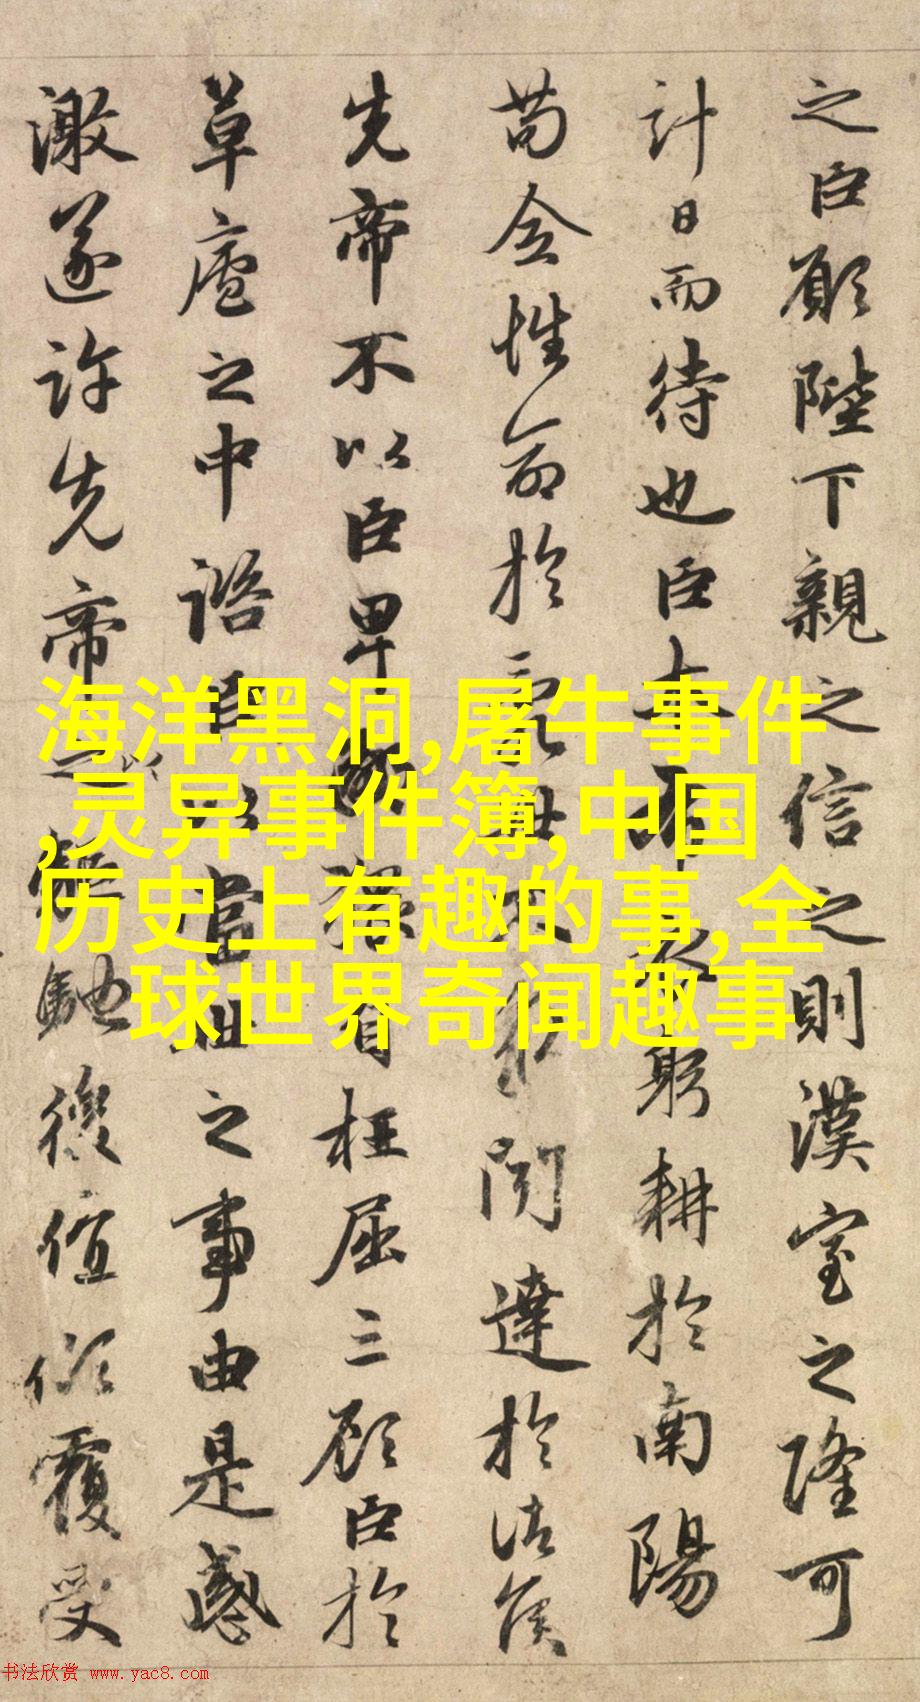 之臣願陛下親之信之則漢室之隆可
計日而待也臣本布衣躬耕於南陽
苟全性命於亂世不求聞達於諸侯
先帝不以臣卑鄙猥自枉屈三顧臣於
草廬之中諮臣以當世之事由是感
激遂許先帝以驅馳後值傾覆受
海洋黑洞,屠牛事件
,灵异事件簿,中国
历史上有趣的事,全
球世界奇闻趣事
书法欣赏 www.yac8.com